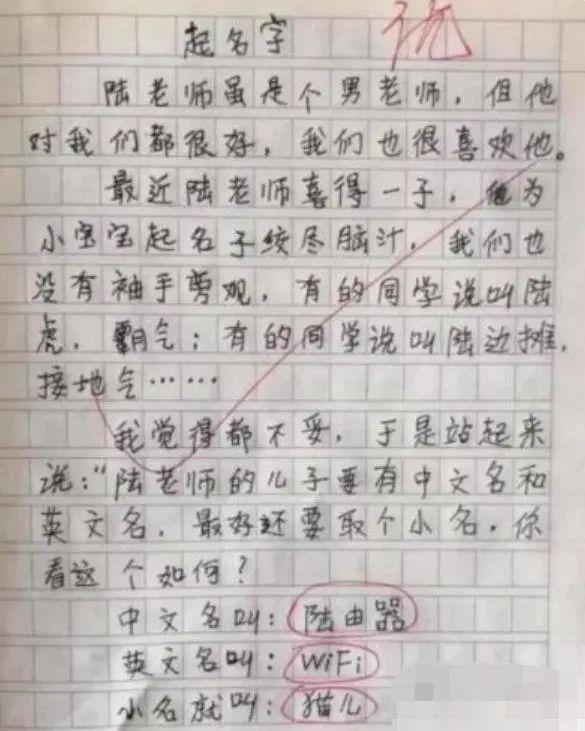 起名字
优
陆老师虽是个男老师，但他
对我们都很好，我们也很喜欢他。
最近陆老师喜得一子，他为
小宝宝起名子绞尽脑汁，我们也
没有袖手剪观，有的同学说叫陆
虎，霸气；有的同学说叫陆边摊，
接地气……
我觉得都不妥，于是站起来
说：“陆老师的儿子要有中文名和
英文名，最好还要取个小名，你
看这个如何？
中文名叫：陆由器
英文名叫：WiFi
小名就叫：猫儿